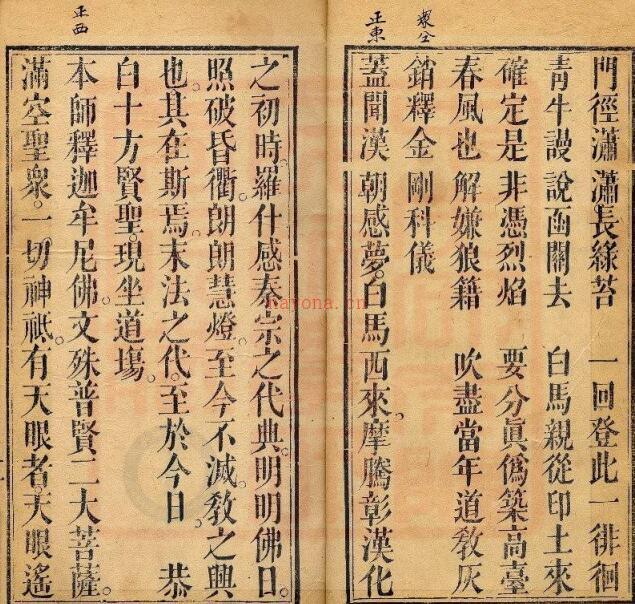 眾仝
正東
門徑瀟瀟長綠苔　一回登此一徘徊
青牛謾說函關去　白馬親從印土來
確定是非憑烈焰　要分眞僞築高臺
春風也解嫌狼籍　吹盡當年道敎灰
銷釋金剛科儀
蓋聞漢朝感夢。白馬西來。摩騰彰漢化
正西
之初時。羅什感秦宗之代典。明明佛日。
照破昏衢。朗朗慧燈。至今不滅。敎之興
也。其在斯焉。末法之代。至於今日。　恭
白十方賢聖。現坐道塲。
本師釋迦牟尼佛。文殊普賢二大菩薩。
滿空聖衆。一切神祇。有天眼者。天眼遙
nayona.cn